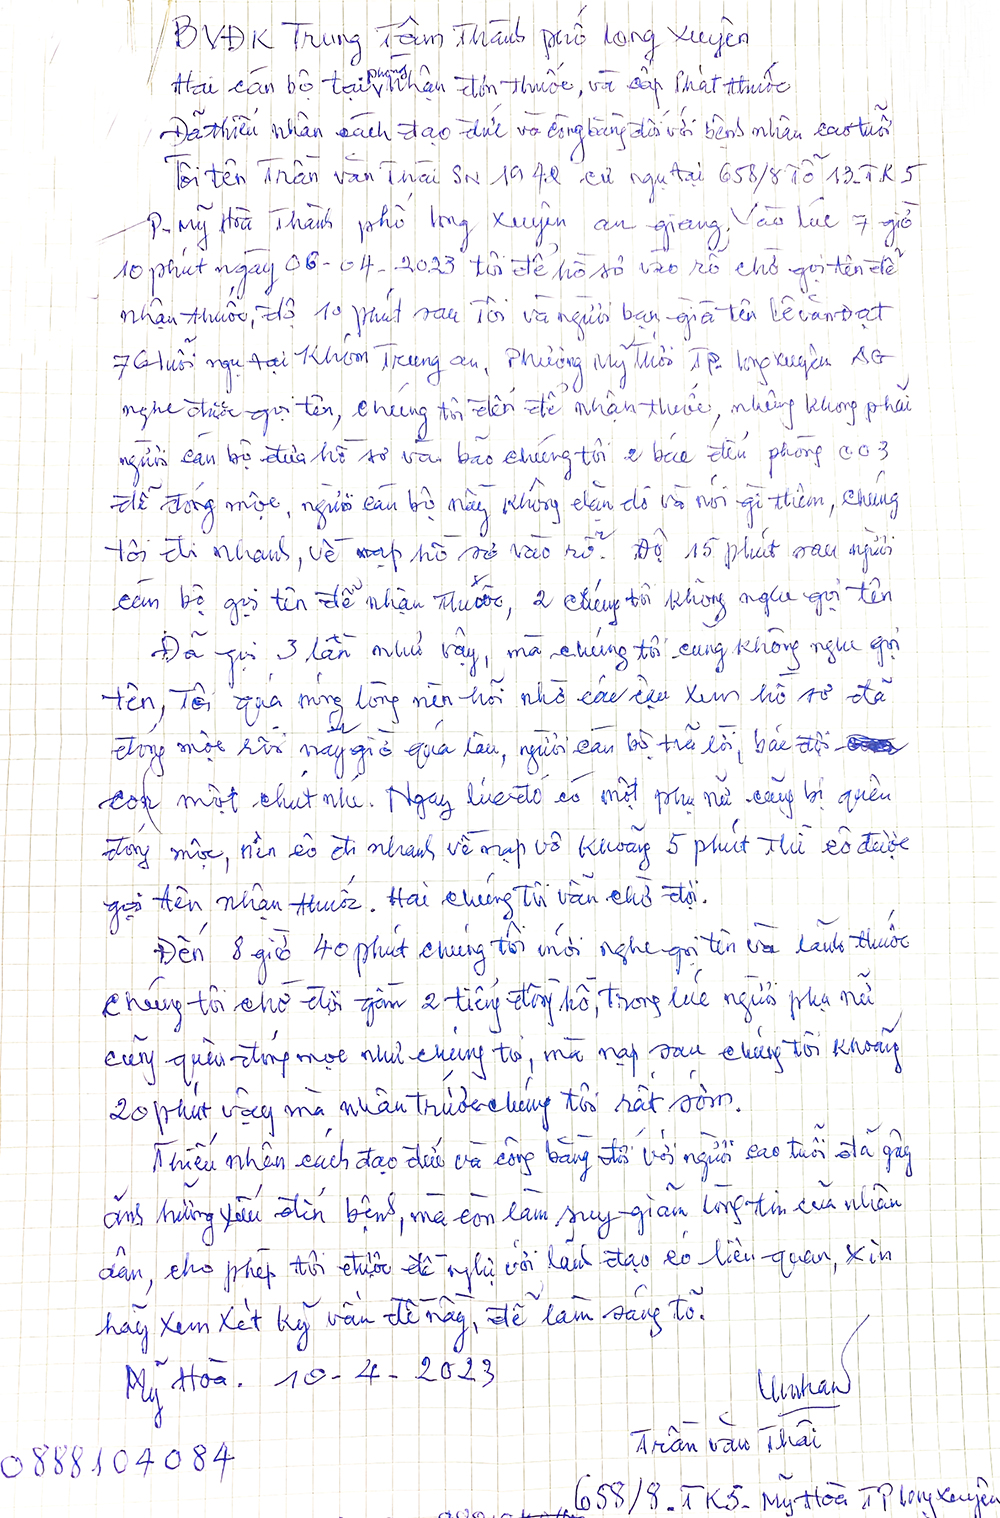 BVĐK Trung Tâm Thành phố Long Xuyên
Hai cán bộ tại phòng nhận đơn thuốc, và cấp phát thuốc
Đã thiếu nhân cách đạo đức và công bằng đối với bệnh nhân cao tuổi
Tôi tên Trần Văn Thái SN 1942 cư ngụ tại 658/8 Tổ 13-TK5
P-Mỹ Hòa Thành phố Long Xuyên an giang. Vào lúc 7 giờ
10 phút ngày 06-04-2023 tôi để hồ sơ vào rổ chờ gọi tên để
nhận thuốc, độ 10 phút sau Tôi và người bạn già tên Lê văn Đạt
76 tuổi ngụ tại Khóm Trung an, Phường Mỹ Thới TP. Long Xuyên AG
nghe được gọi tên, chúng tôi đến để nhận thuốc, nhưng không phải
người cán bộ đưa hồ sơ và bảo chúng tôi 2 bác đến phòng 003
để đóng mộc, người cán bộ này không dặn dò và nói gì thêm, chúng
tôi đi nhanh, về nạp hồ sơ vào rổ. Độ 15 phút sau người
cán bộ gọi tên để nhận thuốc, 2 chúng tôi không nghe gọi tên
Đã gọi 3 lần như vậy, mà chúng tôi cũng không nghe gọi
tên, Tôi quá nóng lòng nên hỏi nhờ các cậu xem hồ sơ đã
đóng mộc rồi nãy giờ quá lâu, người cán bộ trả lời, bác đợi
con một chút nhé. Ngay lúc đó có một phụ nữ cũng bị quên
đóng mộc, nên cô đi nhanh về nạp vô khoảng 5 phút thì cô được
gọi tên nhận thuốc. Hai chúng tôi vẫn chờ đợi.
Đến 8 giờ 40 phút chúng tôi mới nghe gọi tên và lãnh thuốc
chúng tôi chờ đợi gần 2 tiếng đồng hồ, trong lúc người phụ nữ
cũng quên đóng mộc như chúng tôi, mà nạp sau chúng tôi khoảng
20 phút vậy mà nhận trước chúng tôi rất sớm.
Thiếu nhân cách đạo đức và công bằng đối với người cao tuổi đã gây
ảnh hưởng xấu đến bệnh, mà còn làm suy giảm lòng tin của nhân
dân, cho phép tôi được đề nghị với lãnh đạo có liên quan, xin
hãy xem xét kỹ vấn đề này, để làm sáng tỏ.
Mỹ Hòa. 10-4-2023
Trần văn Thái
0888104084
658/8-TK5-Mỹ Hòa TP Long Xuyên